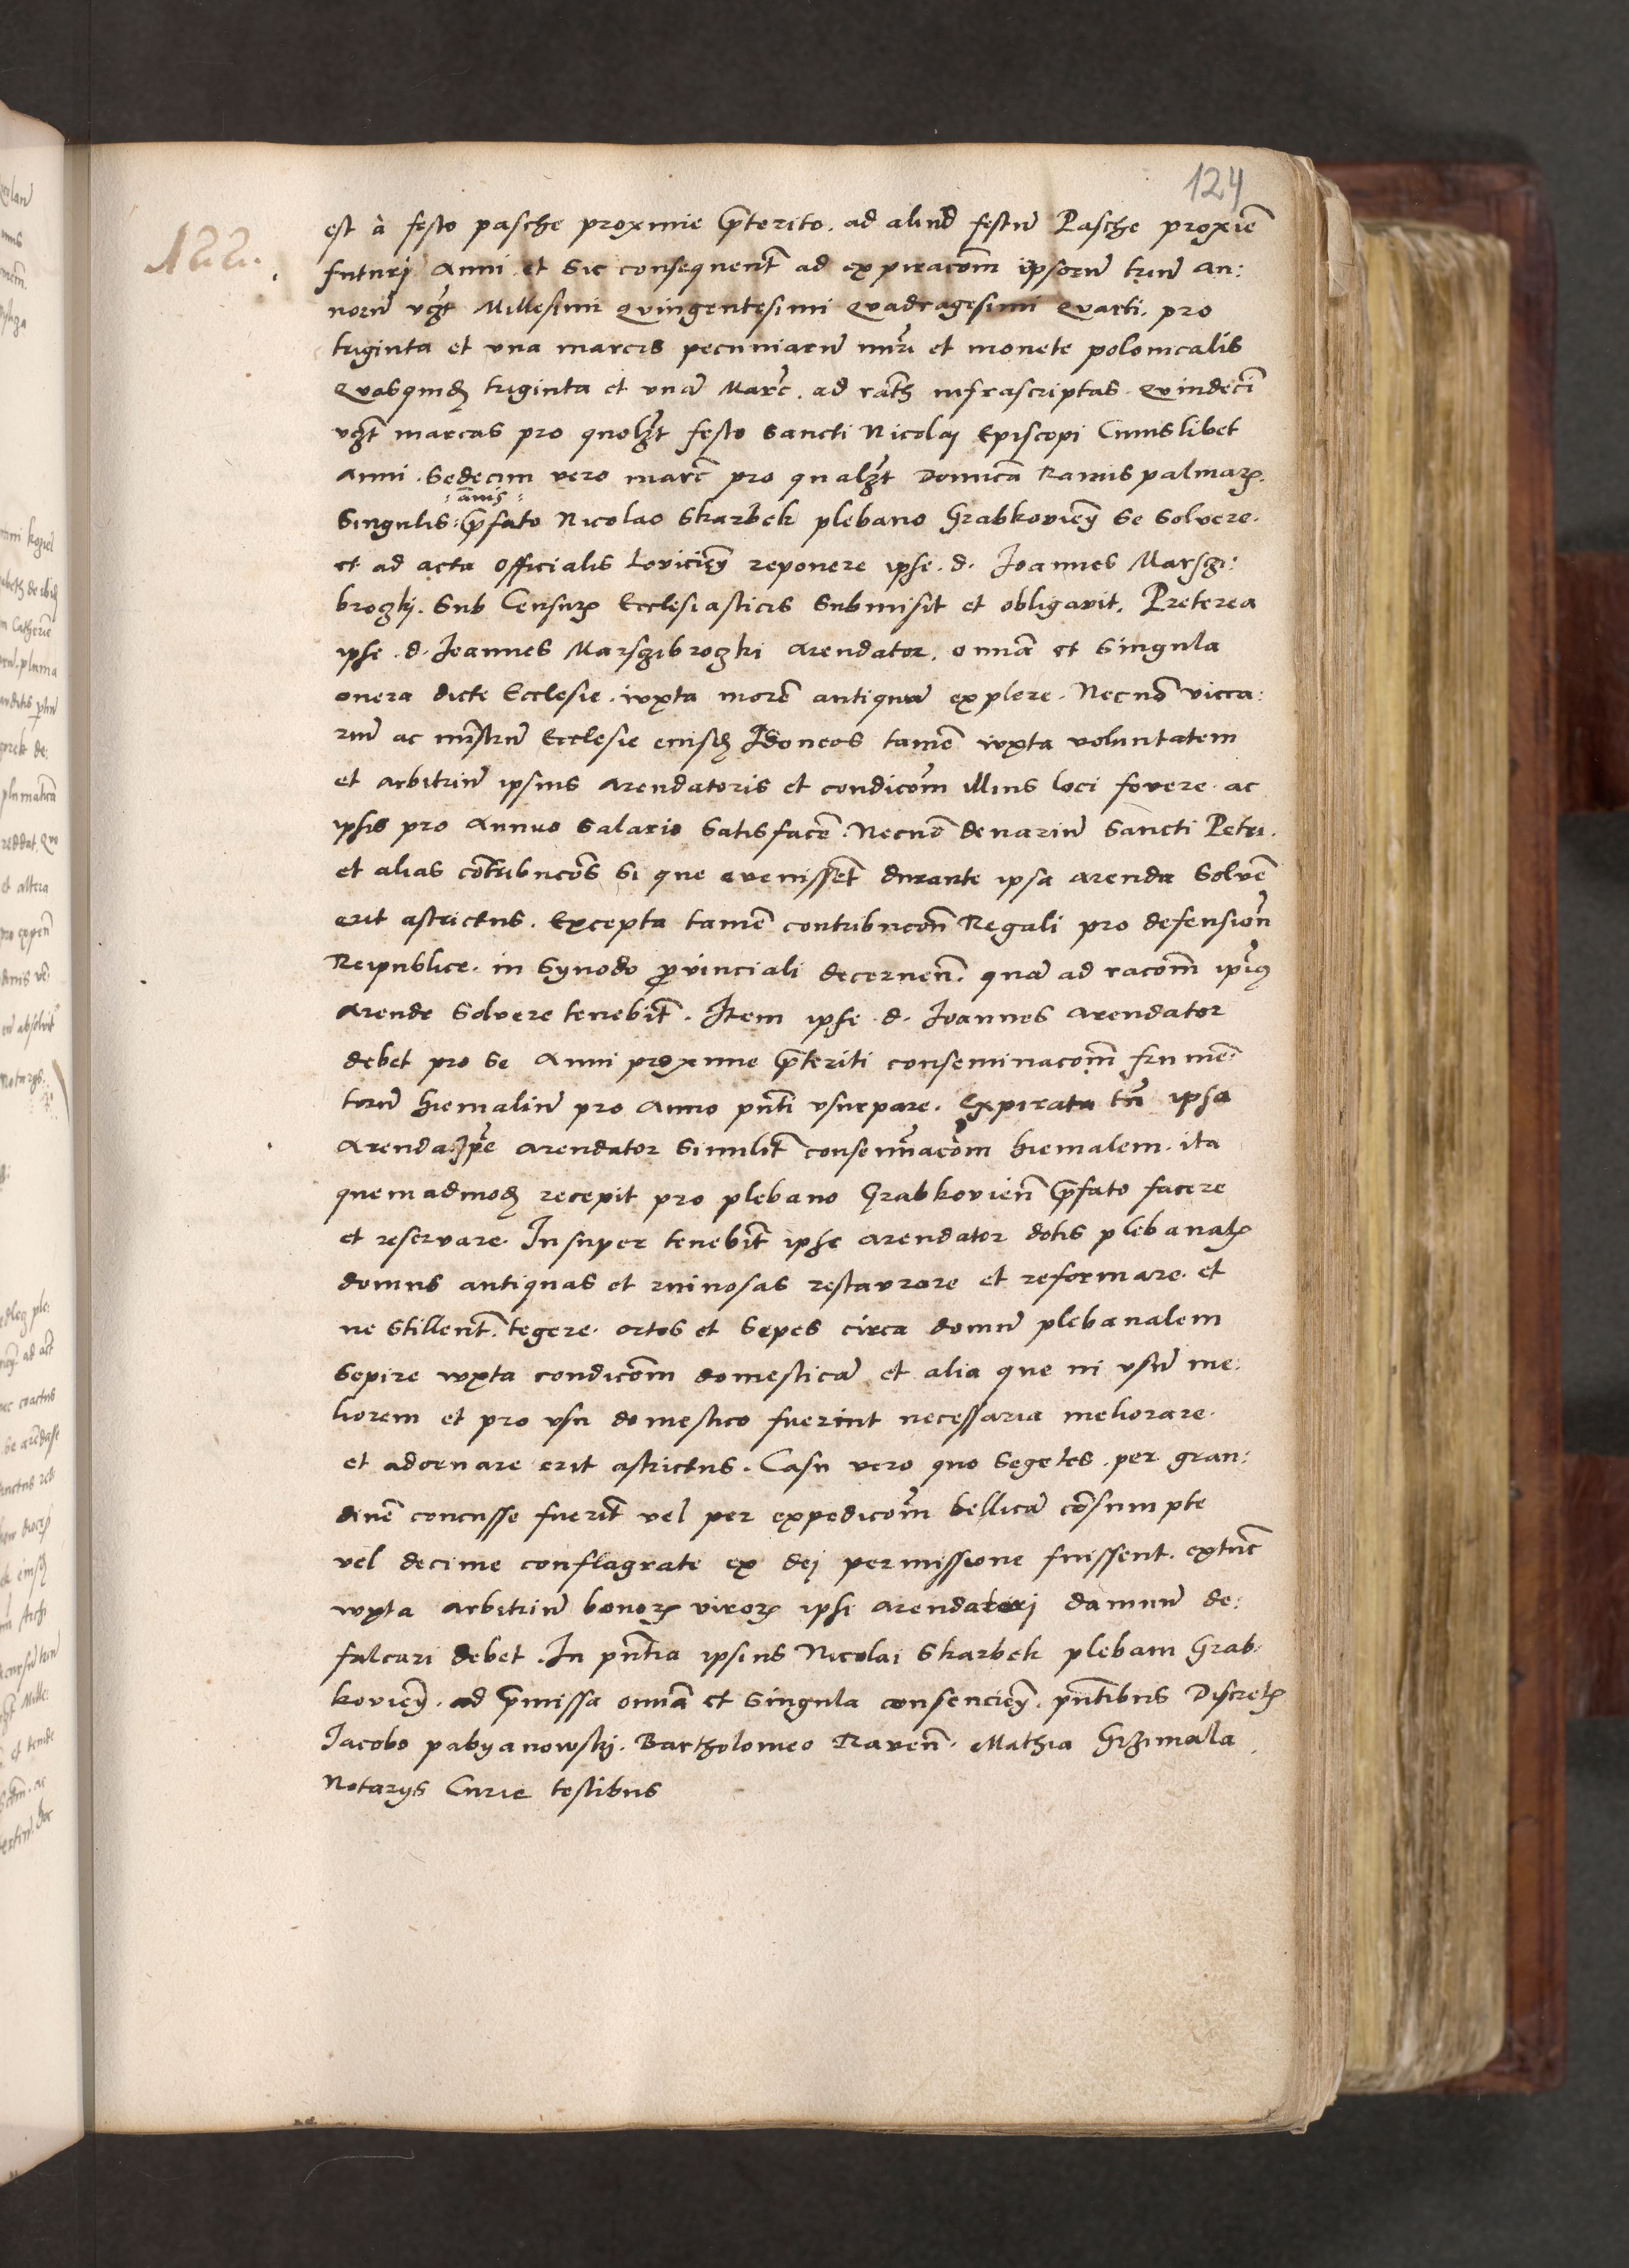 124
122.
est à festo pasche proxime p̄terito. ad aliud festū Pasche proxīe
futurj Anni et sic consequent̄ ad expiracōm ipsorū triū an:
norū vz̄t Millesimi Qvingentesimi Qvadragesimi Qvarti. pro
triginta et vna marcis pecuniarū nūri et monete polonicalis
Qvasquid triginta et vnā Marc̄. ad rath infrascriptas. Qvindeci̅
vz̄t marcas pro quolz̄t festo sancti Nicolaj Episcopi Cuiuslibet
Anni. Sedecim vero marc̄ pro qualz̄t Domīca Ramis palmar̄.
:an̄is:
Singulis: p̄fato Nicolao Skarbek plebano Grabkovieṅ se solvere.
et ad acta Officialis Lovicieṅ reponere ipse. d. Joannes Marszi:
brozkj. sub Censur̄ Ecclesiasticis submisit et obligavit. Preterea
ipse. d. Joannes Marszibrozki Arendator. om̄ia et singula
onera dicte Ecclesie. iuxta morē antiquū explere. Necnō vicca:
riū ac mīstrū Ecclesie eiusd̄ Idoneos tamē iuxta voluntatem
et Arbitriū ipsius Arendatoris et condicōm illius loci fovere. ac
ipsis pro Annuo salario satisfacē. Necnō denariū Sancti Petri.
et alias cōtribucōs si que evenissēt durante ipsa arenda solvē
erit astrictus. Excepta tamē contribucōn Regali pro defensiōn
Reipublice. in Synodo p̄vinciali decernen̄. quā ad racōm ip̄ius
Arende solvere tenebit̄. Item ipse. d. Joannes Arendator
debet pro se Anni proxime p̄teriti conseminacōm frumē:
torū hiemaliū pro Anno pn̄ti vsurpare. Expirata tn̄ ipsa
Arenda ip̄e Arendator similit̄ consemīacōm hiemalem. ita
quemadmod̄ recepit pro plebano Grabkovien̄ p̄fato facere
et reservare. Insuper tenebit̄ ipse arendator dotis plebanal̄
domus antiquas et ruinosas restavrare et reformare. et
ne stillent̄. tegere. ortos et sepes circa domū plebanalem
sepire iuxta condicōm domesticā et alia que in vsū me:
liorem et pro vsu domestico fuerint necessaria meliorare.
et adornare erit astrictus. Casu vero quo segetes. per gran:
dinē concusse fuerīt vel per expedicōm bellicā cōsumpte
vel decime conflagrate ex dej permissione fuissent. extūc
iuxta Arbitriū bonor̄ viror̄ ipsi Arendatorj damnū de:
falcari debet. In pn̄tia ipsius Nicolai Skarbek plebani Grab:
kovieṅ. ad p̄missa om̄ia et singula consencieṅ. pn̄tibus Discret̄
Jacobo pabyanowskj. Bartholomeo Raven̄. Mathia Grzimala
Notarijs Curie testibus